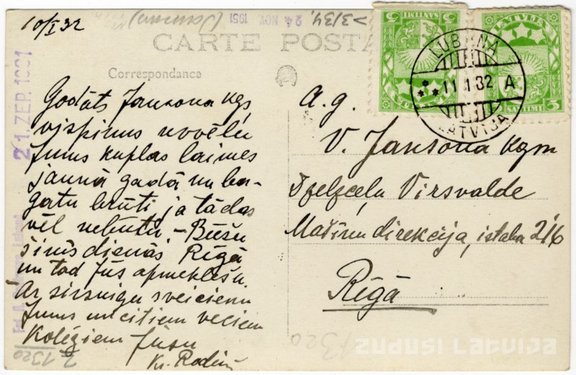 10/I 32
24. NOV. 1951
CARTE POSTA
Correspondance
21. ZEP. 1931
LATVIJA
LUBĀNA
11 1 32 A
LATVIJA
Godāts Jansona kgs
vispirms novēlu
Jums kuplas laimes
jaunā gadā un ba-
gatu brūti, ja tādas
vēl nebūtu – Būšu
šinīs dienās Rīgā
un tad Jūs apmeklēšu.
Ar sirsnigu sveicienu
Jums un citiem veciem
Kolēģiem Jūsu
Kr. Rodiņ
A. g.
V. Jansona kgm
Dzelzceļu Virsvalde
Mašīnu direkcija, istaba 216
Rīgā
1320
ZUDUSI LATVIJA